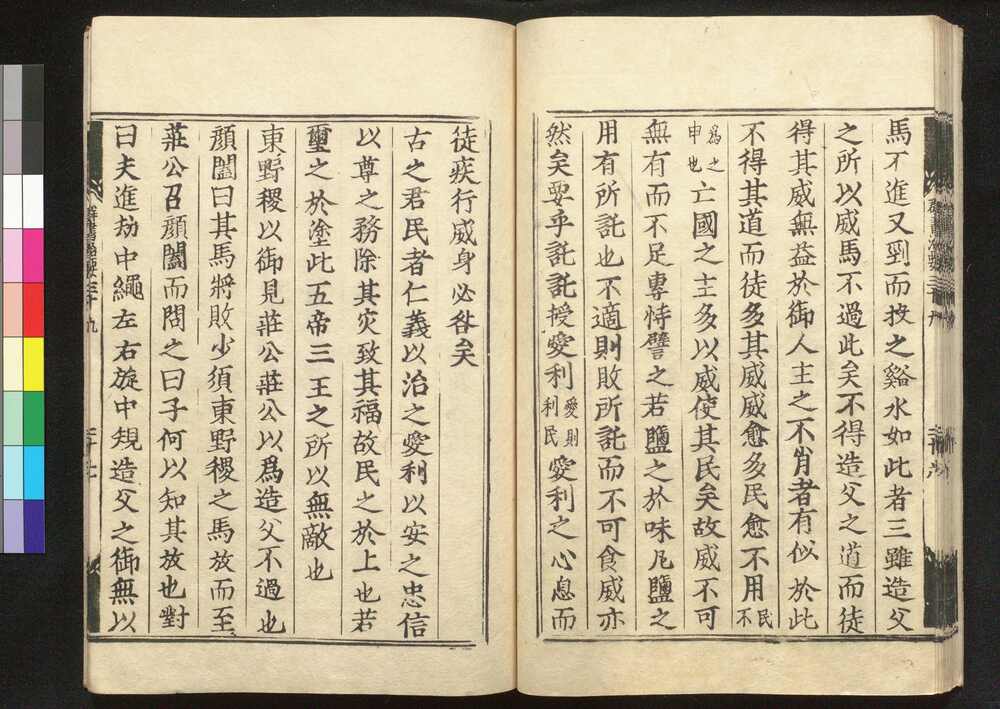 馬不進又剄而投之谿水如此者三雖造父
之所以威馬不過此矣不得造父之道而徒
得其威無益於御人主之不肖者有似於此
不得其道而徒多其威威愈多民愈不用民不
為之申也亡國之主多以威使其民矣故威不可
無有而不足專恃譬之若鹽之於味凡鹽之
用有所託也不適則敗所託而不可食威亦
然矣惡乎託託授愛利愛則利民愛利之心息而
徒疾行威身必咎矣
古之君民者仁義以治之愛利以安之忠信
以尊之務除其灾致其福故民之於上也若
璽之於塗此五帝三王之所以無敵也
東野稷以御見莊公莊公以爲造父不過也
顏闔曰其馬將敗少須東野稷之馬放而至
莊公召顏闔而問之曰子何以知其放也對
曰夫進劫中繩左右旋中規造父之御無以
群書治要三十九
三十七